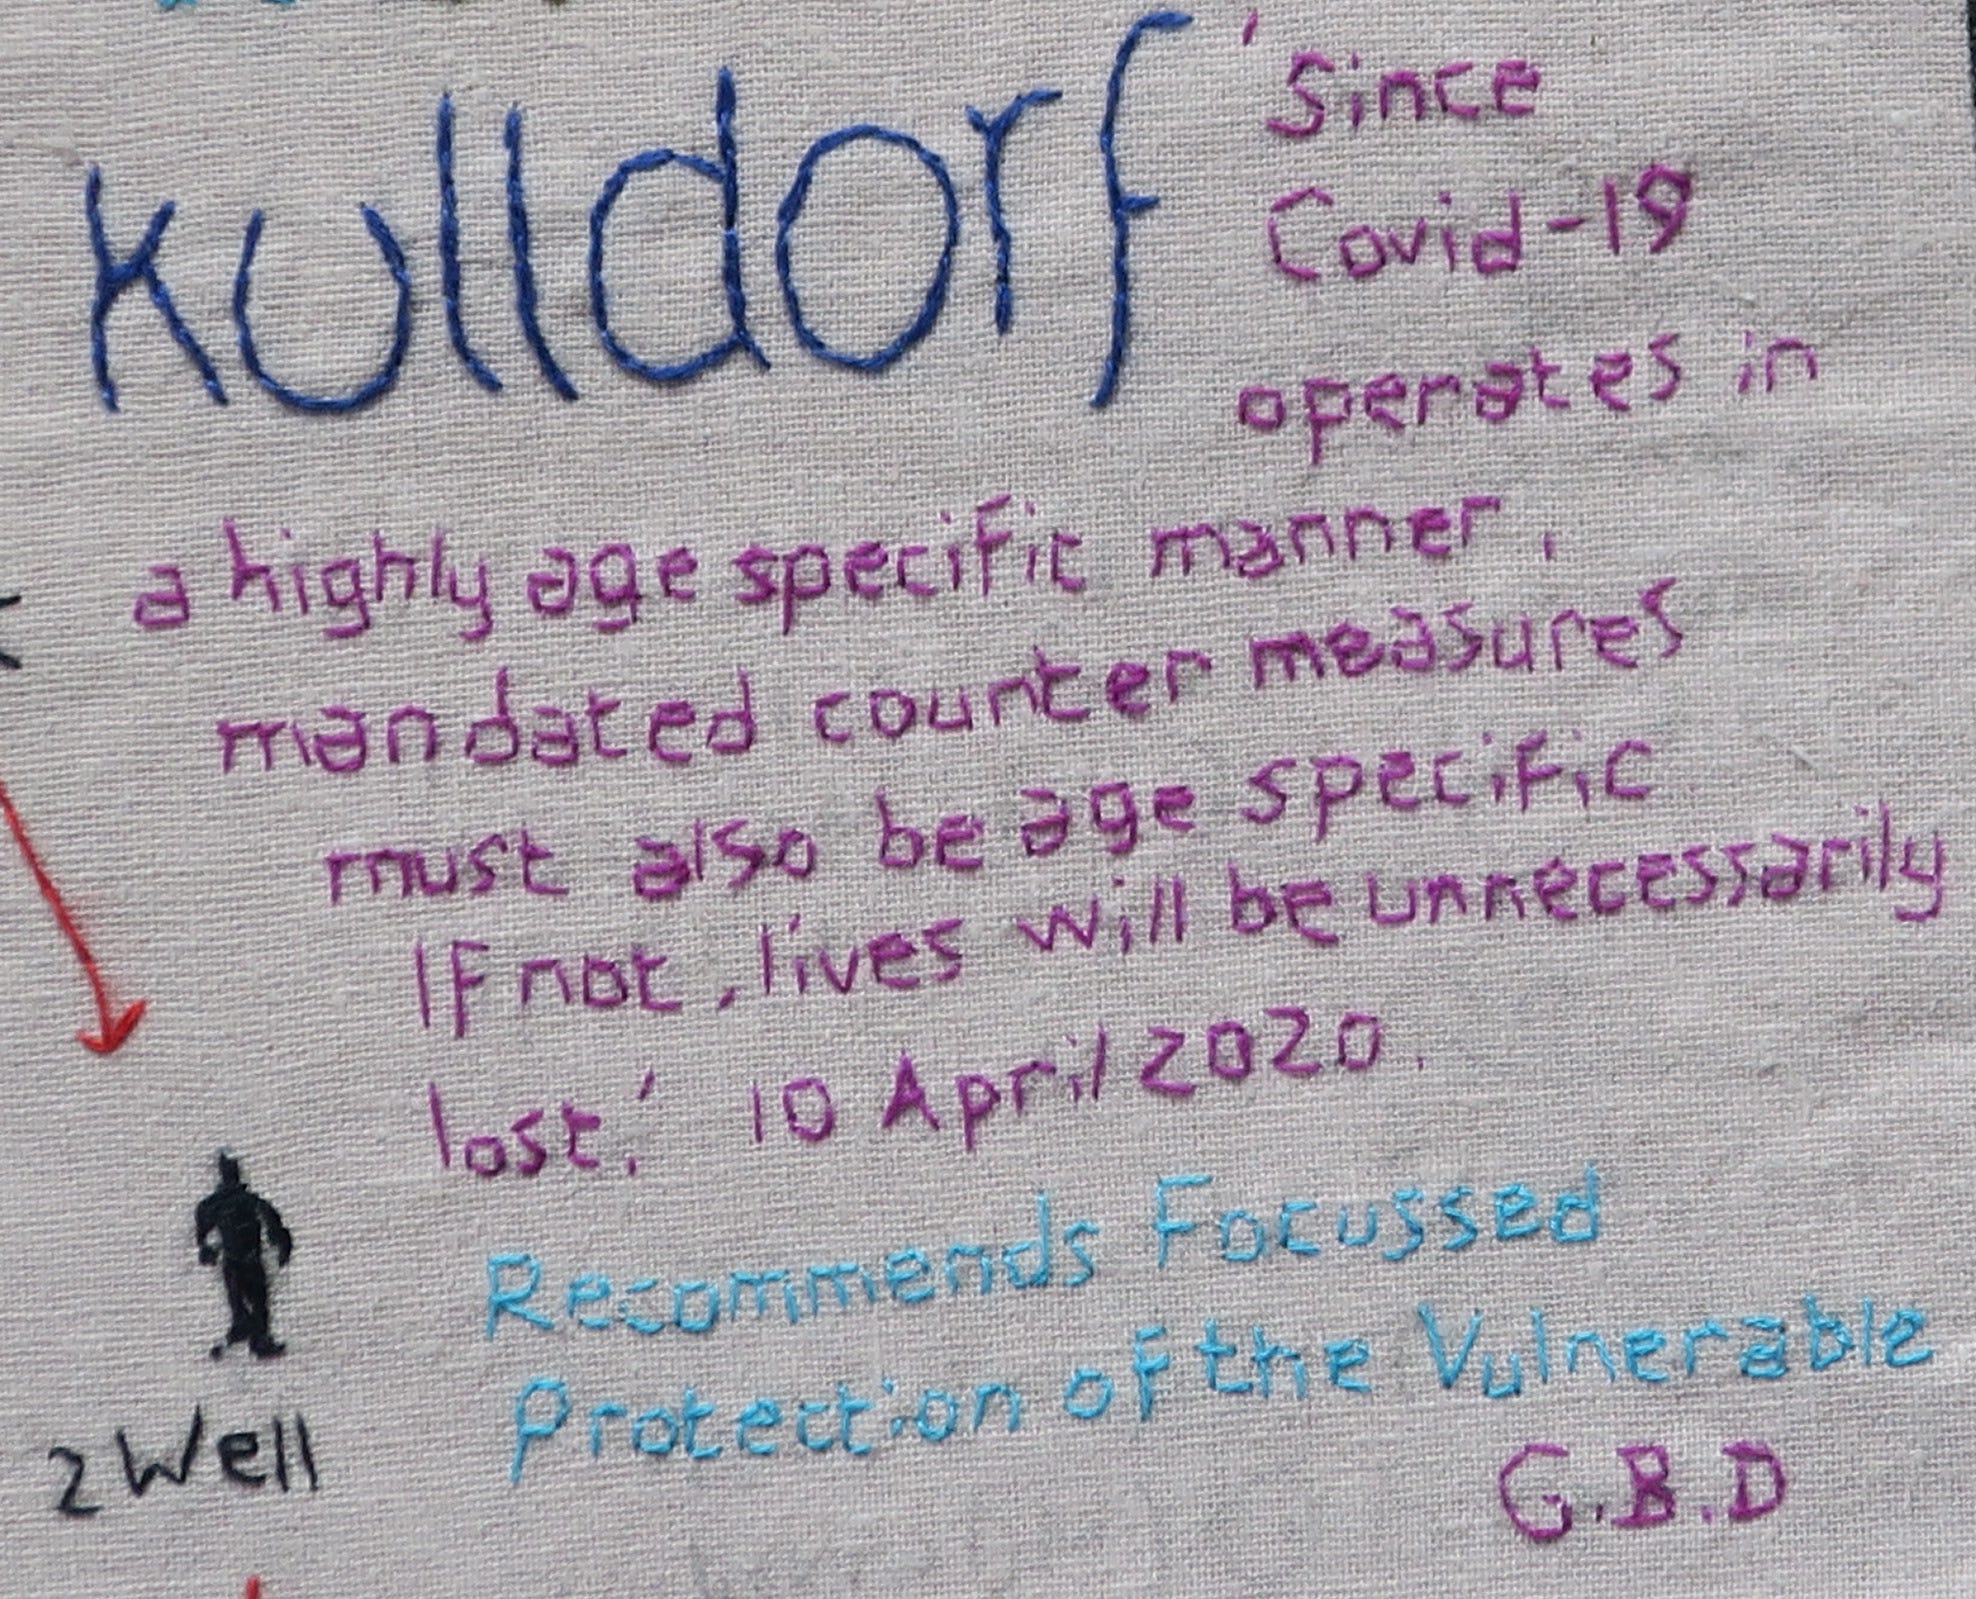 Kulldorf
'Since
Covid-19
operates in
a highly age specific manner,
mandated counter measures
must also be age specific
If not, lives will be unnecessarily
lost.' 10 April 2020.
Recommends Focussed
Protection of the Vulnerable
G.B.D
2 Well